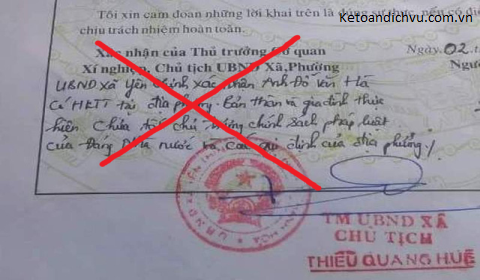 Tôi xin cam đoan những lời khai trên là đúng sự thực, nếu có
Ketoandichvu.com.vn
chịu trách nhiệm hoàn toàn.
Xác nhận của Thủ trưởng Cơ quan
Ngày 02.
Xí nghiệp, Chủ tịch UBND Xã,Phường
UBND xã Yên Chính xác nhận Anh Đỗ Văn Hà
Có HKTT tại địa phương. Bản thân và gia đình thức
hiện chưa tốt chủ trương chính sách pháp luật
của Đảng Nhà nước và các quy định của địa phương./.
TM UBND XÃ
CHỦ TỊCH
THIỀU QUANG HUỆ